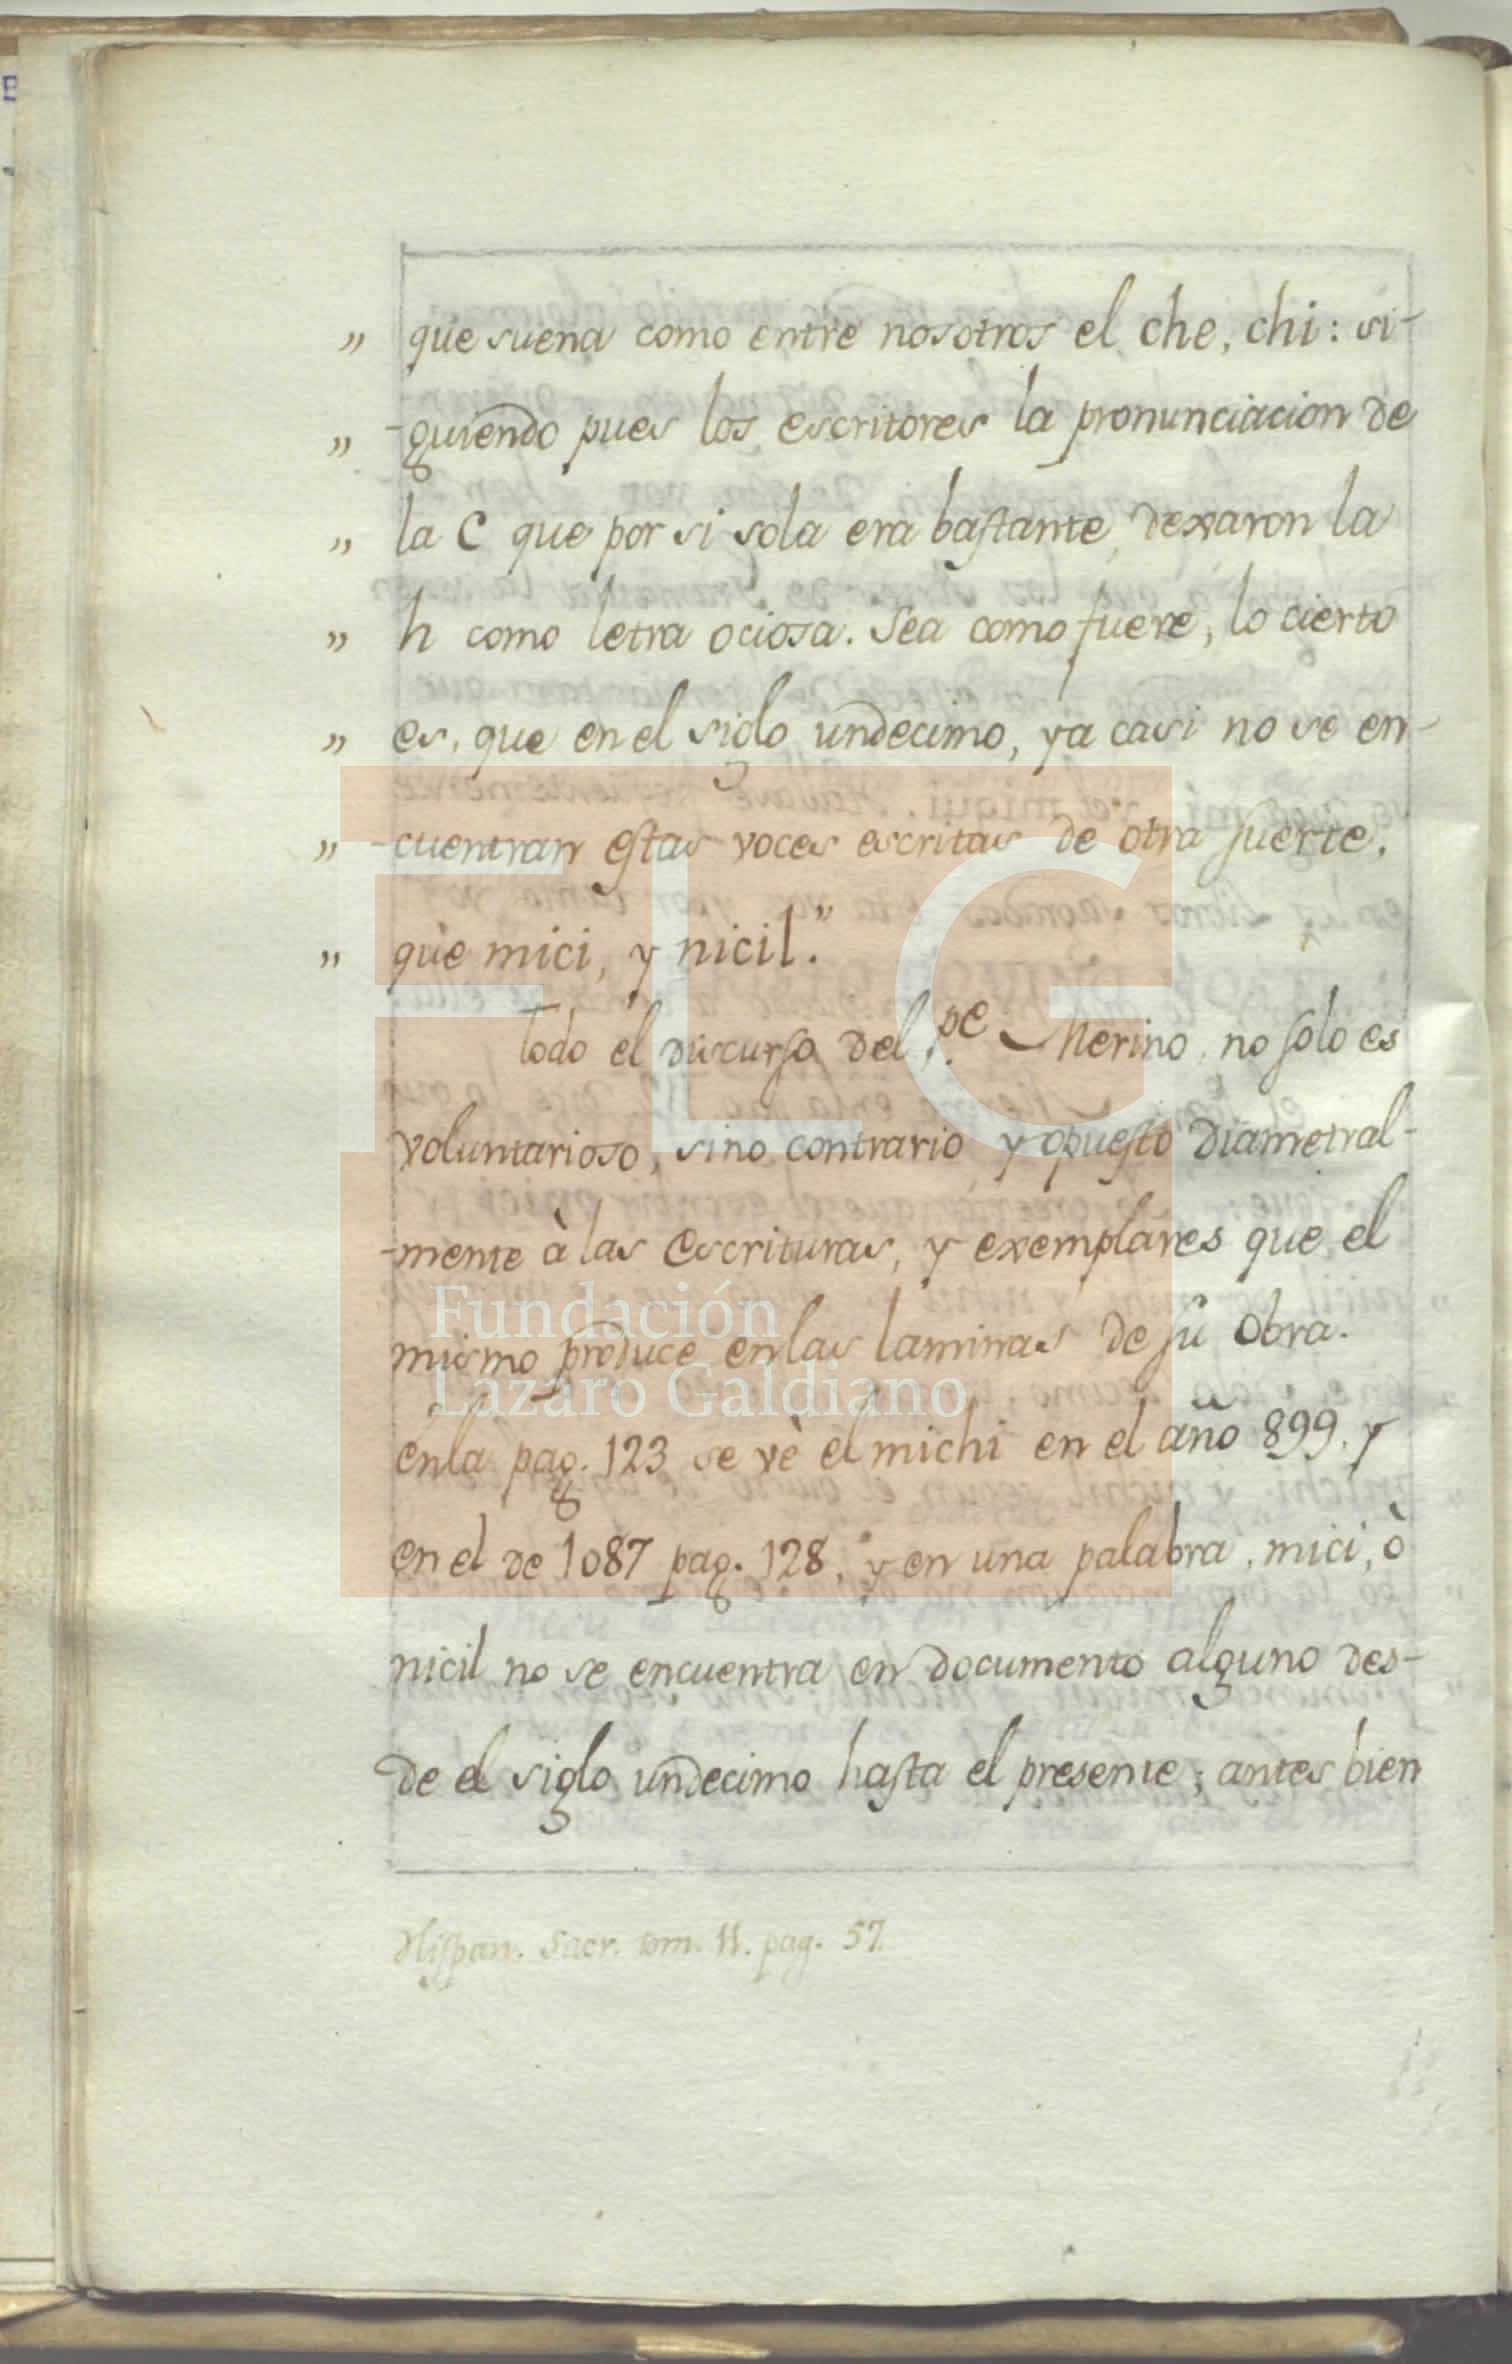 „ que suena como entre nosotros el che, chi: si-
„ -guiendo pues los escritores la pronunciacion de
„ la C que por si sola era bastante, dexaron la
„ h como letra ociosa. Sea como fuere, lo cierto
„ es, que en el siglo undecimo, ya casi no se en-
„ -cuentran estas voces escritas de otra suerte,
„ que mici, y nicil.”
Todo el discurso del P.e Merino, no solo es
voluntarioso, sino contrario y opuesto diametral-
-mente à las escrituras, y exemplares que el
mismo produce en las laminas de su Obra.
en la pag. 123 se vè el michi en el año 899. y
en el de 1087 pag. 128, y en una palabra, mici, ò
nicil no se encuentra en documento alguno des-
de el siglo undecimo hasta el presente; antes bien
Hispan. Sacr. tom. 11. pag. 57.
FLG
Fundación
Lázaro Galdiano